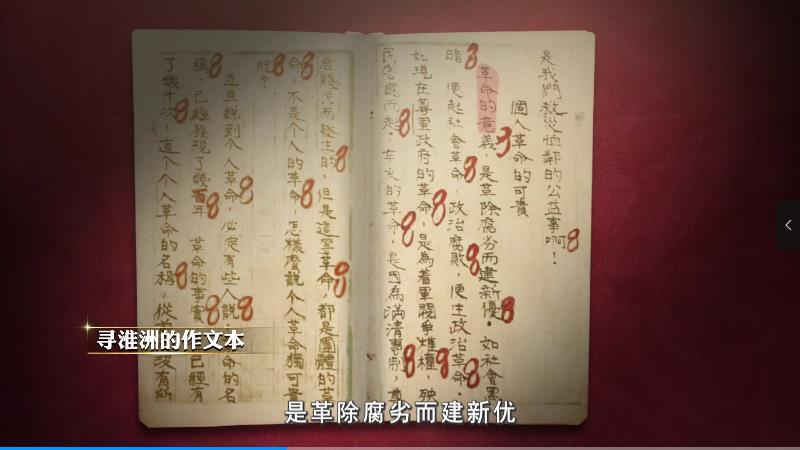 是我們救災恤鄰的公益事啊！
個人革命的可貴
革命的意義，是革除腐劣而建新優。如社會黑
暗，便起社會革命，政治腐敗，便生政治革命。
如現在軍政府的革命，是為着軍閥爭權，殃
民而起。辛亥的革命，是因為滿清專制，
而發生的，但是這等革命，都是團體的革
命，不是个人的革命，怎樣麼說个人革命獨可貴
呢？
並且說到个人革命，必定有些人說，命的名
稱，已經發現了幾百年，革命的事實，已經有
了幾千次，這个个人革命的名稱，從沒有所
寻淮洲的作文本
是革除腐劣而建新优